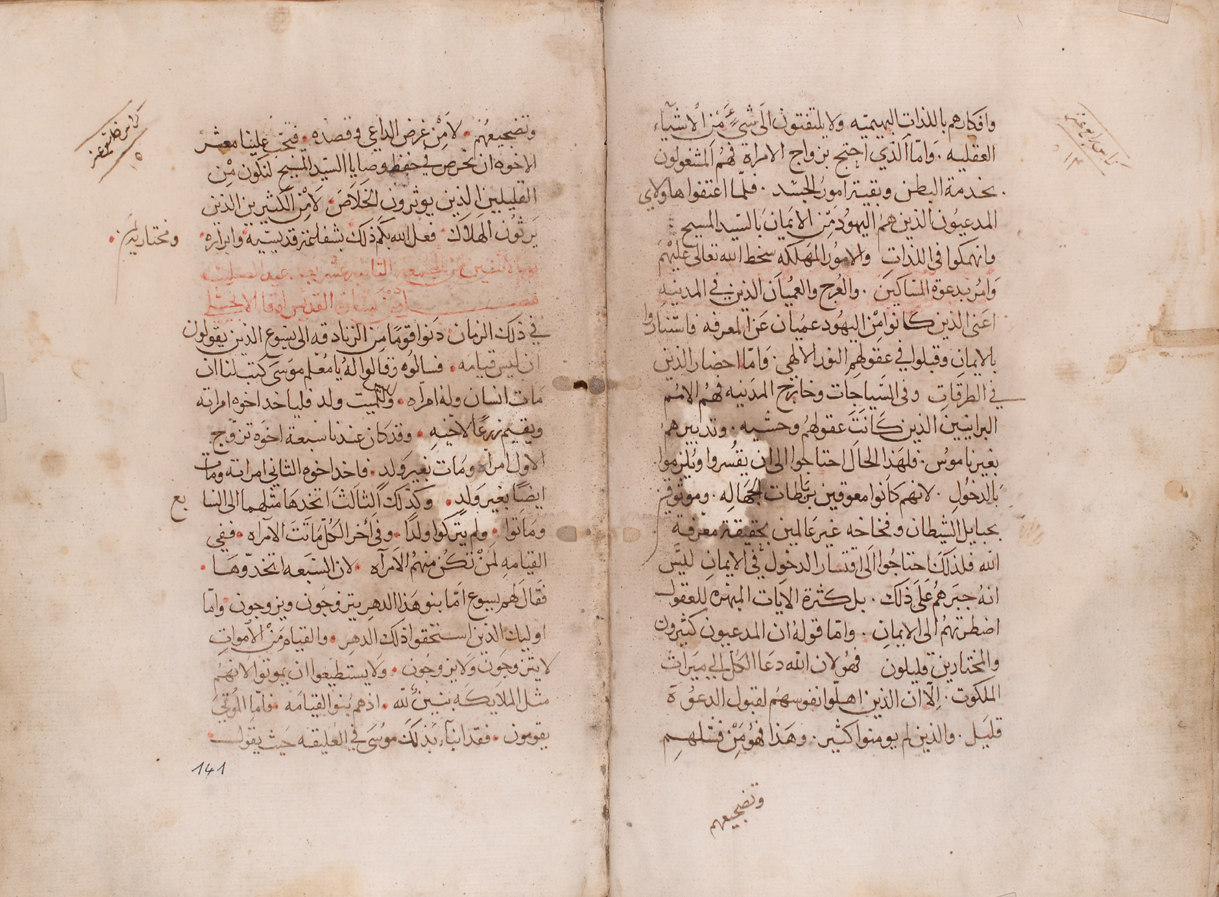 وافكارهم باللذات البهيميه ولا يلتفتون الى شيءٍ من الاشيآء
العقليه . وامّا الذي احتج بزواج الامراة فهُم المشغولون
بخدمة البطن وبقية امور الجسّد . فلمّا اعتفوا هاولاي
المدعيون الذين همُ اليهود من الايمان بالسّيد المسيح :
وانهمكوا في اللذات والامور المُهلكه سخط الله تعالى عليهم
وامر بدعوة المساكين . والعُرج والعميان الذين في المدينه
اعني الذين كانوا من اليهود عميان عن المعرفه فاستناروا
بالايمان وقبلوا في عقولهم النور الالهي . وامّا احضار الذين
في الطرقات وفي السّياجات وخارج المدينه فهُم الامُم
البرانيين الذين كانت عقولهمُ وحشيه . وتدبيرهم
بغير ناموس . فلهذا الحال احتاجوا الى ان يقُسروا ويُلزموا
بالدخول . لانهم كانوا معوقين برباطات الجهاله . وموثوقين
بحبايل الشيطان وفخاخه غير عالمين بحقيقة معرفة
الله فلذلك احتاجوا الى اقتسار الدخول في الايمان ليسَ
انه جبَرهم على ذلك . بل كثرة الايات المبهره للعقول
اضطرتهم الى الايمان . وامّا قوله ان المدعيون كثيرون
والمختارين قليلون فهو لان الله دعا الكل الى ميراث
الملكوت . الّا ان الذين اهلوا نفوسهم لقبول الدعوة
قليل . والذين لم يومنوا كثير . وهذا فهو من فشلهم
وتضجيعهم
وتضجيعهُم . لا من غرض الداعي وقصده . فيجب علينا معشر
الاخوه ان نحرص في حفظ وصايا السّيد المسيح لنكون من
القليلين الذين يوثرون الخلاص . لا من الكثيرين الذين
يرثون الهلاك . فعل الله بكم ذلك بشفاعة قديسيه وابراره .
ومختاريه
في ذلك الزمان دنوا قومًا من الزنادقه الى يسوع الذين يقولون
ان ليس قيامه . فسالوه وقالوا له يا معلم موسى كتب لنا ان
مات انسان وله امراه . والميت ولد فلياخد اخوه امراته
ويقيم زرعًا لاخيه . وقد كان عندنا سَبعة اخوه تزوج
الاول امراه ومات بغير ولد . فاخد اخوه الثاني امراته ومات
ايضًا بغير ولد . وكذلك الثالث اتخدها مثلهما الى السّا
بع
وماتوا . ولم يتركوا ولدًا . وفي اخر الكل ماتت الامراه . ففي
القيامه لمن تكن منهم الامراه . لان السّبعه اتخدوها .
فقال لهم يسوع امّا بنو هذا الدهر يتزوجون ويزوجون . وامّا
اوليك الذين استحقوا ذلك الدهر . والقيام من الاموات
لا يتزوجون ولا يزوجون . ولا يستطيعوا ان يموتوا لانهم
مثل الملايكه بنيين لله . اذ هم بنو القيامه . فامّا الموتى
يقومون . فقد انباء بذلك موسَى في العليقه حيث يقول
141